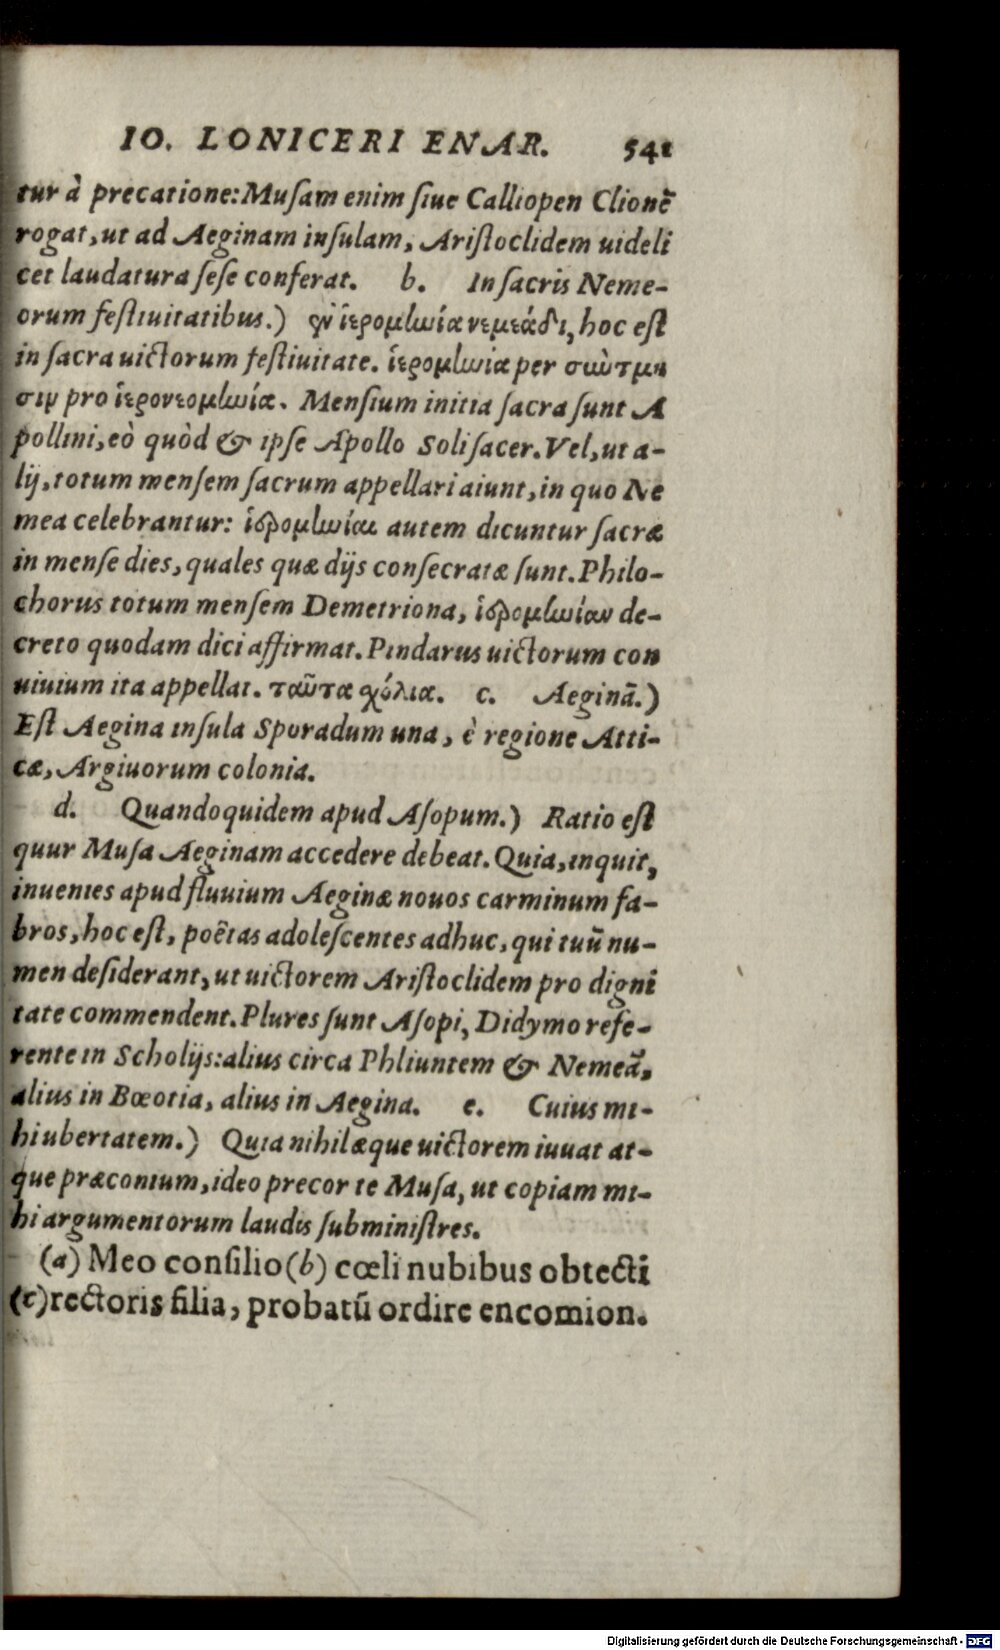 IO. LONICERI ENAR. 541
tur à precatione: Musam enim siue Calliopen Clionē
rogat, ut ad Aeginam insulam, Aristoclidem uideli
cet laudatura sese conferat. b. In sacris Neme-
orum festiuitatibus.) ἐν ἱερομηνία νεμεάδι, hoc est
in sacra uictorum festiuitate. ἱερομηνία per σύντμη
σιν pro ἱερονεομηνία. Mensium initia sacra sunt A
pollini, eò quòd & ipse Apollo Soli sacer. Vel, ut a-
lij, totum mensem sacrum appellari aiunt, in quo Ne
mea celebrantur: ἱερομηνίαι autem dicuntur sacræ
in mense dies, quales quæ dijs consecratæ sunt. Philo-
chorus totum mensem Demetriona, ἱερομηνίαν de-
creto quodam dici affirmat. Pindarus uictorum con
uiuium ita appellat. ταῦτα χόλια. c. Aeginā.)
Est Aegina insula Sporadum una, è regione Atti-
cæ, Argiuorum colonia.
d. Quandoquidem apud Asopum.) Ratio est
quur Musa Aeginam accedere debeat. Quia, inquit,
inuenies apud fluuium Aeginæ nouos carminum fa-
bros, hoc est, poëtas adolescentes adhuc, qui tuū nu-
men desiderant, ut uictorem Aristoclidem pro digni
tate commendent. Plures sunt Asopi, Didymo refe-
rente in Scholijs: alius circa Phliuntem & Nemeā,
alius in Bœotia, alius in Aegina. e. Cuius mi-
hi ubertatem.) Quia nihil æque uictorem iuuat at-
que præconium, ideo precor te Musa, ut copiam mi-
hi argumentorum laudis subministres.
(a) Meo consilio (b) cœli nubibus obtecti
(c) rectoris filia, probatū ordire encomion.
Digitalisierung gefördert durch die Deutsche Forschungsgemeinschaft - DFG